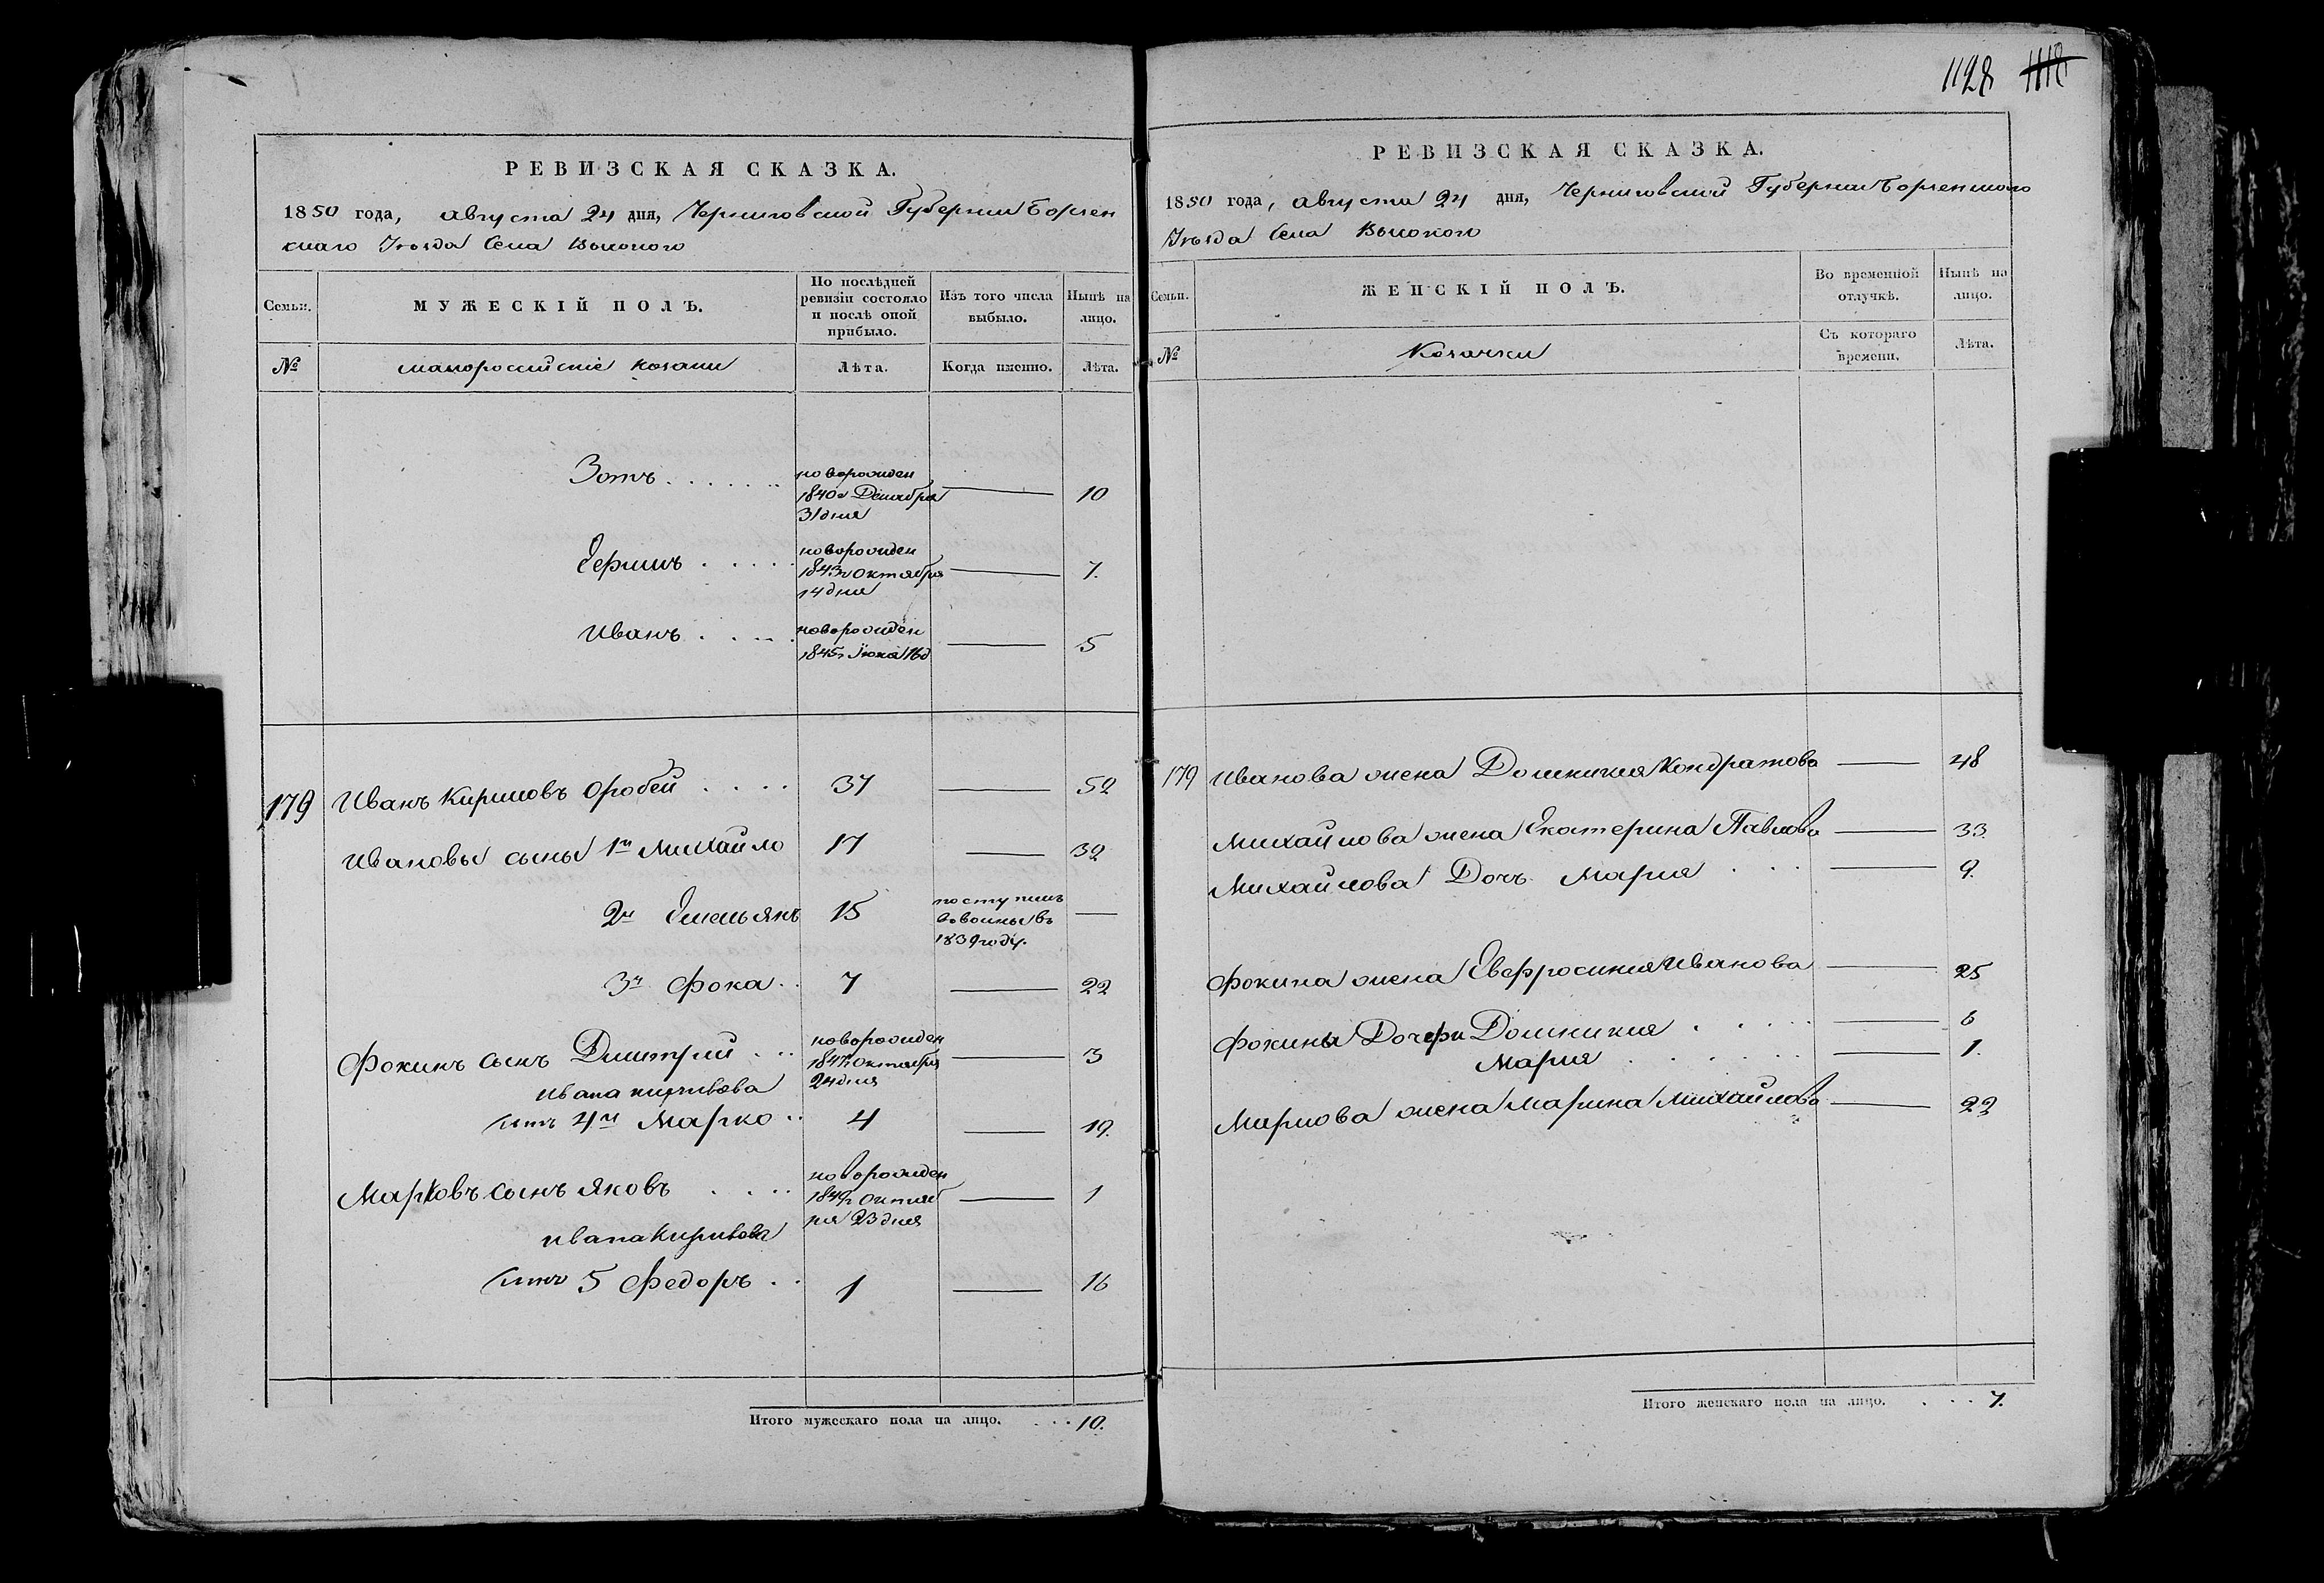 1128 1118
РЕВИЗСКАЯ СКАЗКА.
1850 года, августа 24 дня, Черниговской Губернии Борзен
скаго Уѣзда Села Высокого
Семьи.
МУЖЕСКІЙ ПОЛЪ.
По послѣдней
ревизіи состояло
и послѣ оной
прибыло.
Изъ того числа
выбыло.
Нынѣ на
лицо.
№
малороссийскіе козаки
Лѣта.
Когда именно.
Лѣта.
Зотъ
новорожден
1840г Декабря
31 дня
10
новорожден
1843г Октября
14 дня
7.
Иванъ
новорожден
1845г Іюня 16д
5
179 Иванъ Кириловъ Оробей 37 52
Ивановы сыны 1й Михайло 17 32
2й Емельянъ 15
поступилъ
въ воины въ
1839 году.
3й Фока 7 22
Фокинъ сынъ Дмитрий
новорожден
1847г Октября
24 дня
3
Ивана Кирилова
сынъ 4й Марко 4 19.
Марковъ сынъ Яковъ
новорожден
1849г Октяб
ря 23 дня
1
Ивана Кирилова
сынъ 5 Федоръ 1 16
Итого мужескаго пола на лицо. 10.
РЕВИЗСКАЯ СКАЗКА.
1850 года, августа 24 дня, Черниговской Губернии Борзенского
Уѣзда Села Высокого
Семьи.
ЖЕНСКІЙ ПОЛЪ.
Во временной
отлучкѣ.
Нынѣ на
лицо.
№
Козачки
Съ котораго
времени.
Лѣта.
179 Иванова жена Домникия Кондратова 48
Михайлова жена Екатерина Павлова 33
Михайлова Дочь Мария 9.
Фокина жена Евфросиния Иванова 25
Фокины Дочери Домникия 6
Мария 1.
Маркова жена Марина Михайлова 22
Итого женскаго пола на лицо. 7.